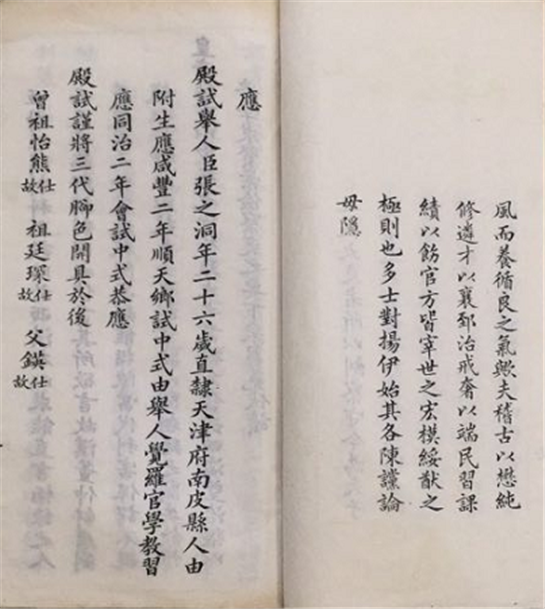 風而養循良之氣歟夫稽古以懋純
修遴才以襄郅治戒奢以端民習課
績以飭官方皆宰世之宏模綏猷之
極則也多士對揚伊始其各陳讜論
毋隱
應
殿試舉人臣張之洞年二十六歲直隸天津府南皮縣人由
附生應咸豐二年順天鄉試中式由舉人覺羅官學教習
應同治二年會試中式恭應
殿試謹將三代腳色開具於後
曾祖怡熊仕故 祖廷琛仕故 父鍈仕故